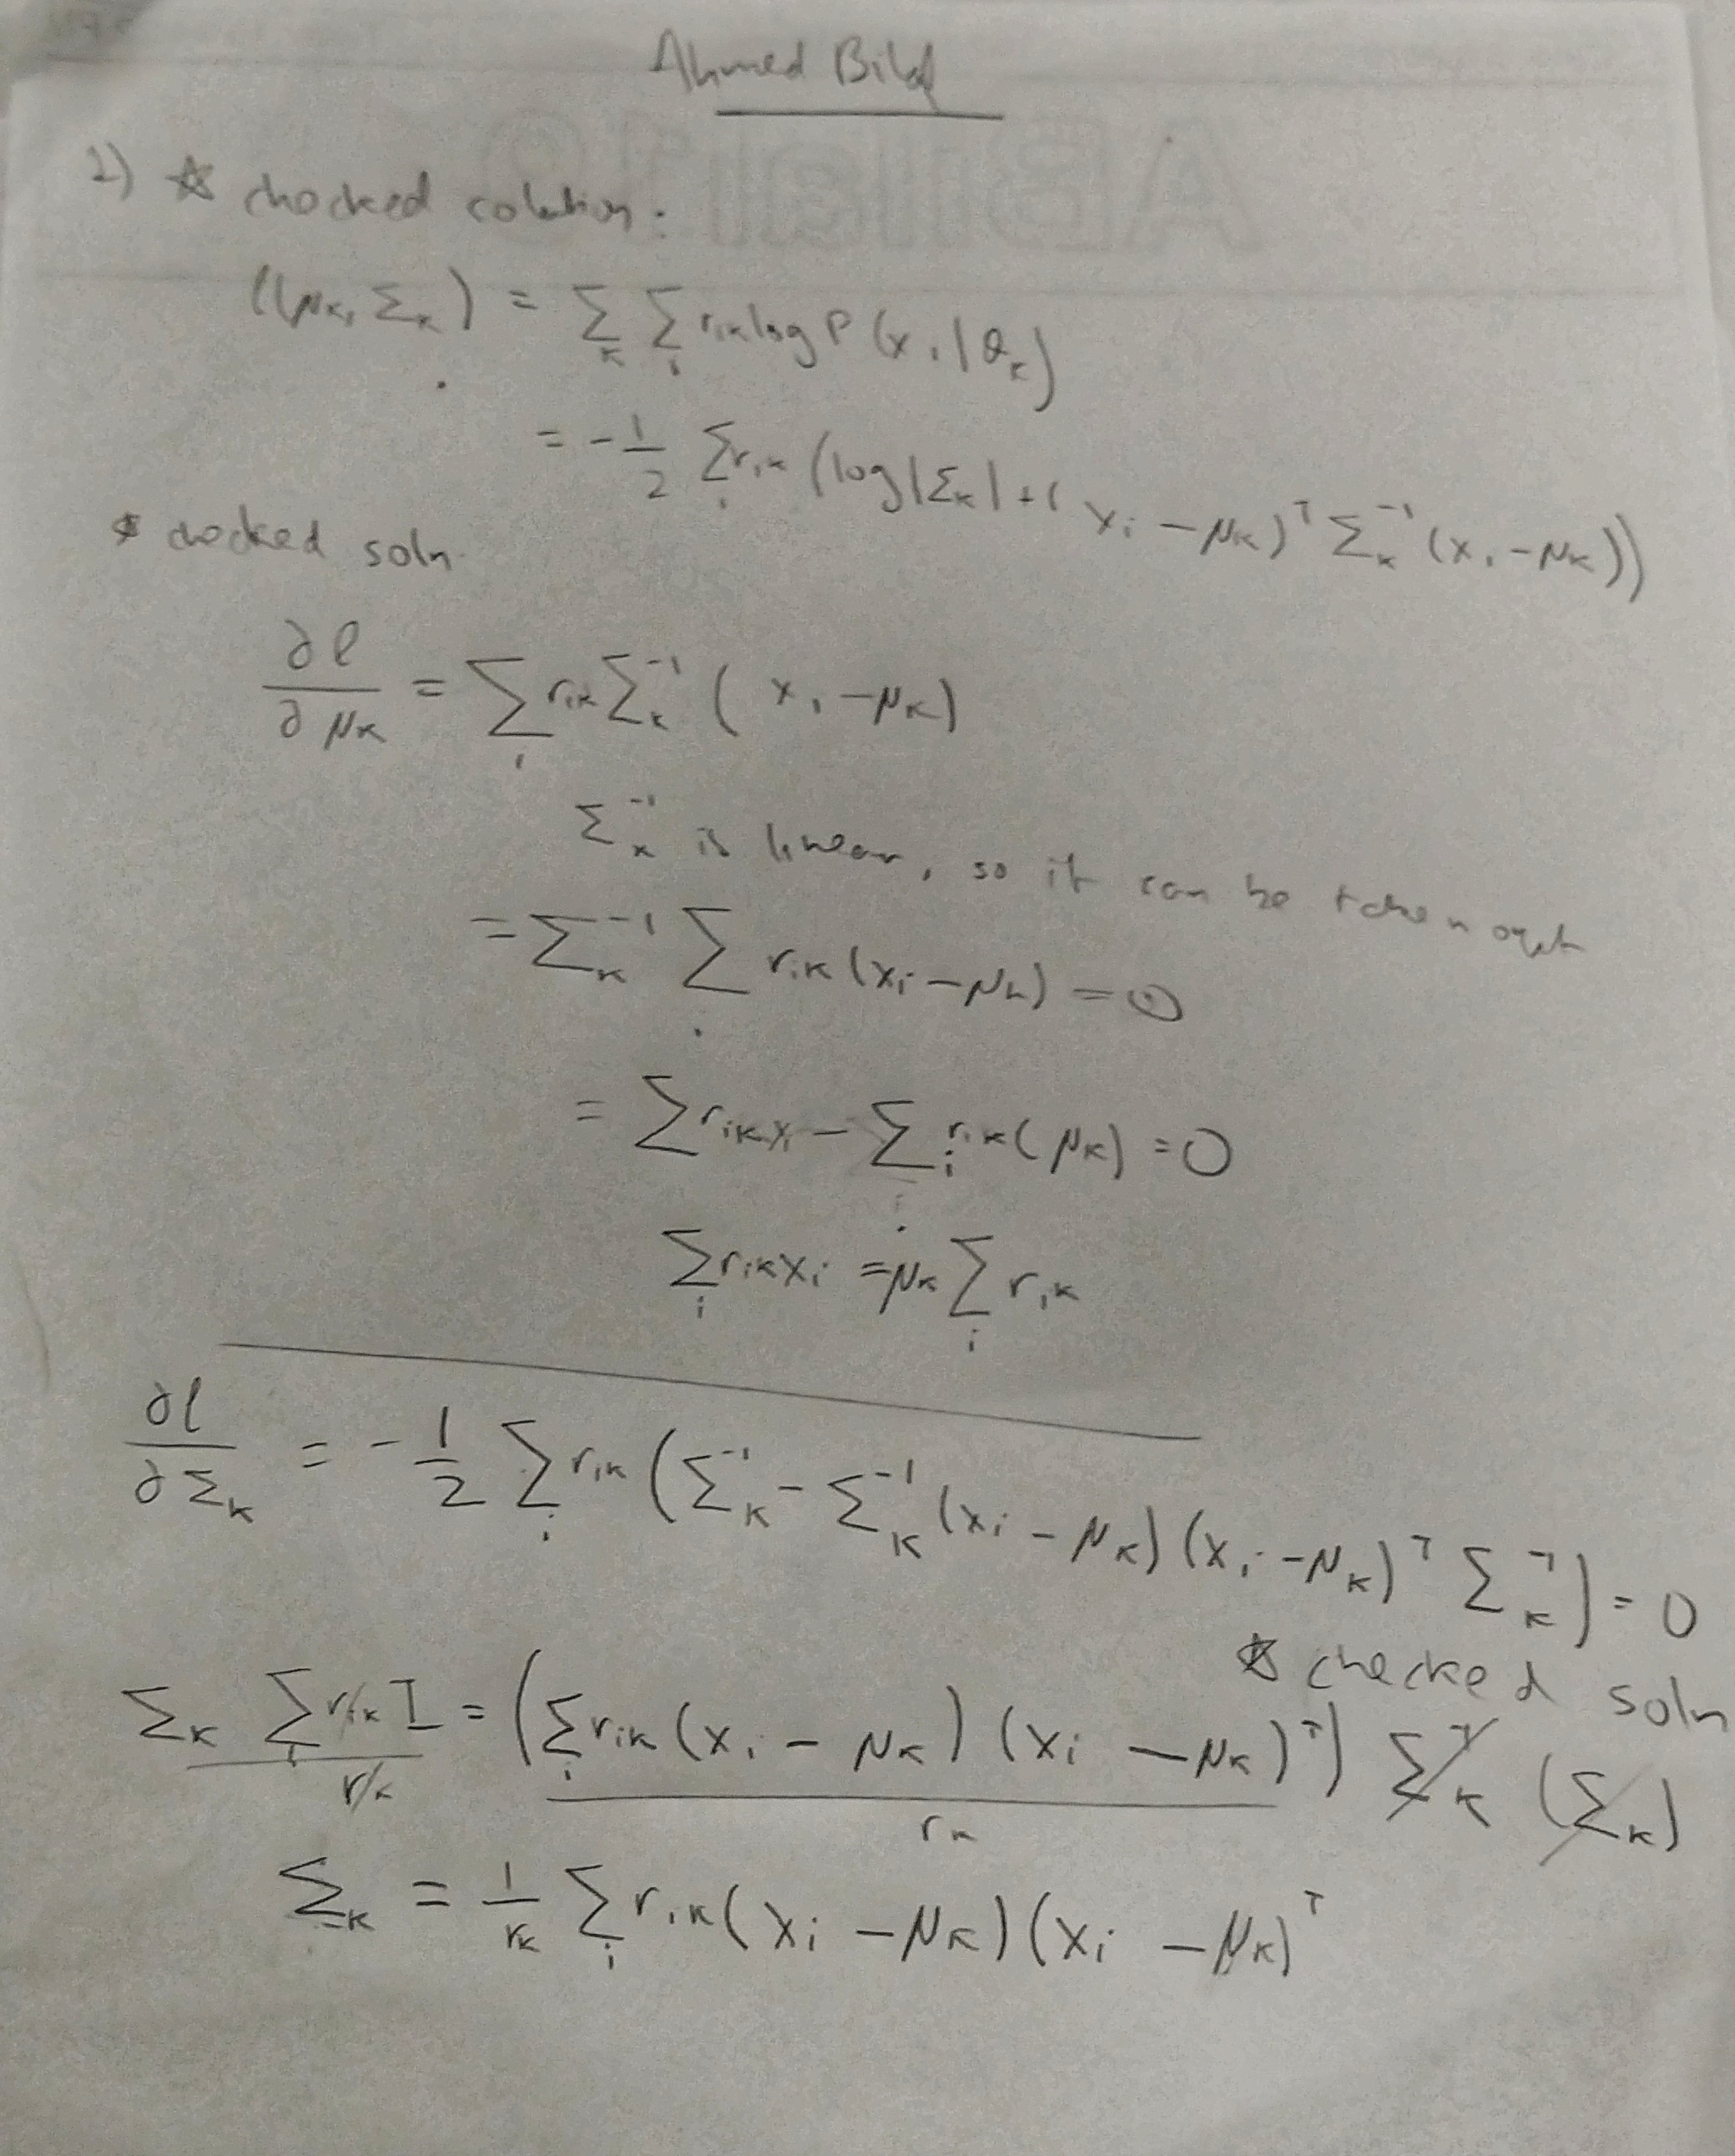 Ahmed Bilal
2) ☆ checked solution:
l(μₖ, Σₖ) = Σₖ Σᵢ rᵢₖ log P(xᵢ | θₖ)
= -1/2 Σᵢ rᵢₖ (log|Σₖ| + (xᵢ - μₖ)ᵀ Σₖ⁻¹ (xᵢ - μₖ))
☆ checked soln.
∂ℓ/∂μₖ = Σᵢ rᵢₖ Σₖ⁻¹ (xᵢ - μₖ)
Σₖ⁻¹ is linear, so it can be taken out
= Σₖ⁻¹ Σᵢ rᵢₖ (xᵢ - μₖ) = 0
= Σ rᵢₖ xᵢ - Σᵢ rᵢₖ (μₖ) = 0
Σᵢ rᵢₖ xᵢ = μₖ Σᵢ rᵢₖ
∂l/∂Σₖ = -1/2 Σᵢ rᵢₖ (Σₖ⁻¹ - Σₖ⁻¹ (xᵢ - μₖ)(xᵢ - μₖ)ᵀ Σₖ⁻¹) = 0
☆ checked soln
Σₖ Σᵢ rᵢₖ I / rₖ = (Σᵢ rᵢₖ (xᵢ - μₖ)(xᵢ - μₖ)ᵀ) / rₖ Σₖ⁻¹ (Σₖ)
Σₖ = 1/rₖ Σᵢ rᵢₖ (xᵢ - μₖ)(xᵢ - μₖ)ᵀ